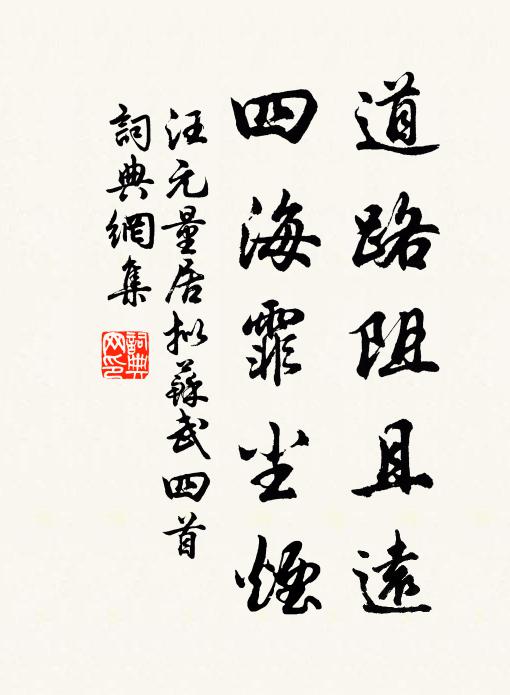 道路阻且遠
四海霏尘煙
汪元量居拟蘇武四首
詞典網集
詞典網印